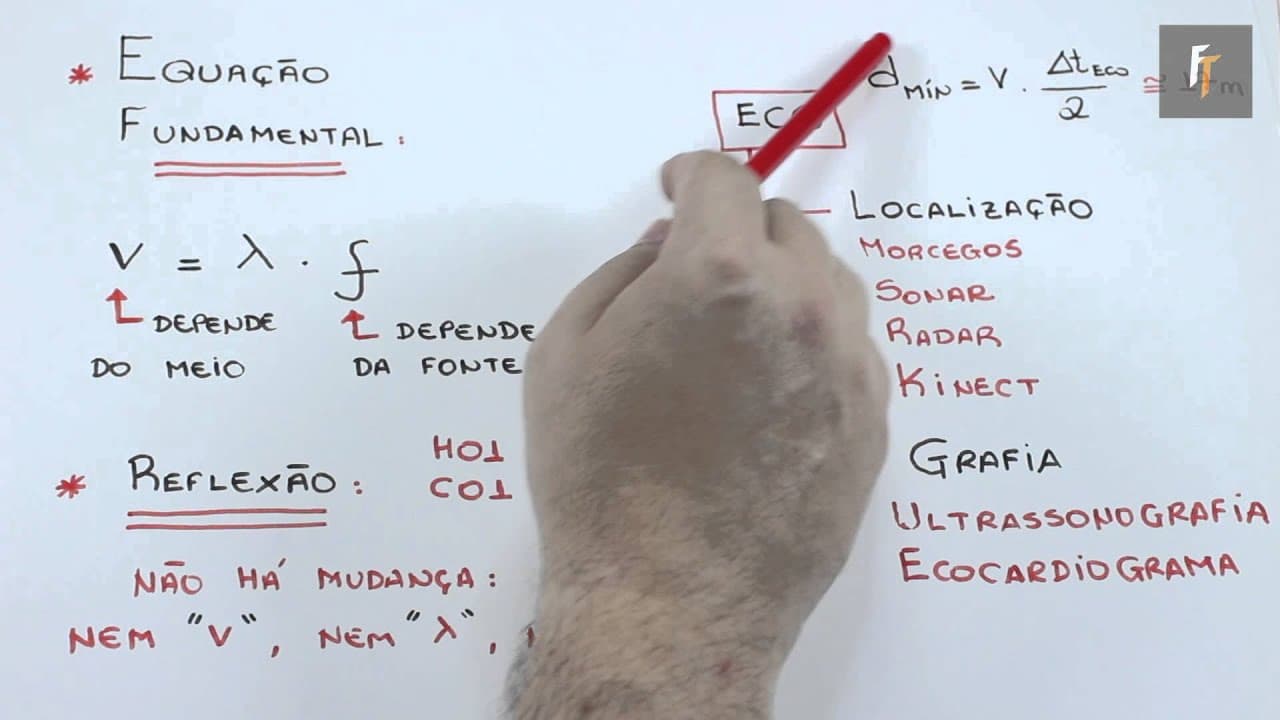 * EQUAÇÃO
FUNDAMENTAL:
V = λ . f
DEPENDE
DO MEIO
DEPENDE
DA FONTE
* REFLEXÃO:
H01
C01
NÃO HÁ MUDANÇA:
NEM "V", NEM "λ",
d MÍN = V . Δt ECO / 2 ≅ m
LOCALIZAÇÃO
MORCEGOS
SONAR
RADAR
KINECT
GRAFIA
ULTRASSONOGRAFIA
ECOCARDIOGRAMA